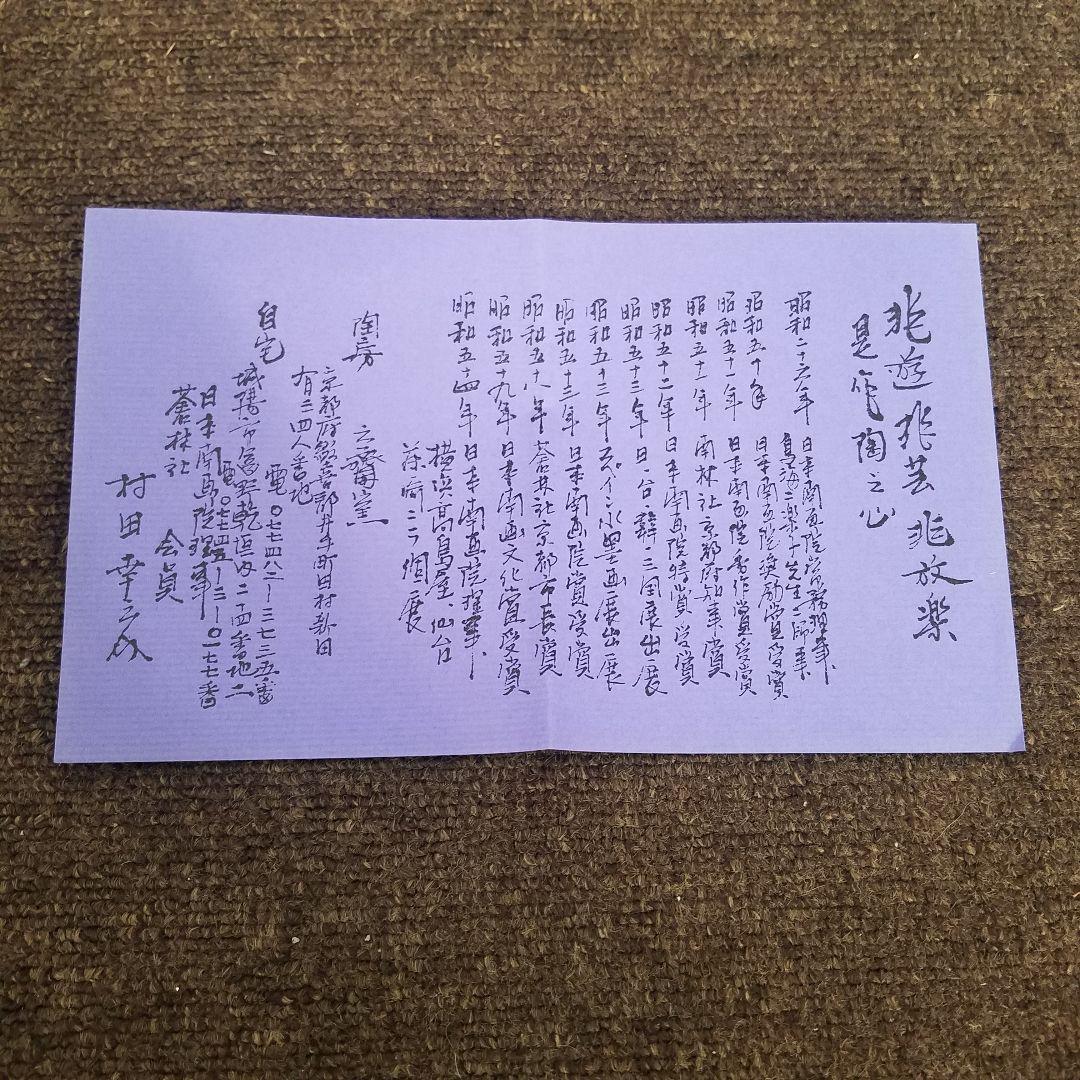 兆遊兆芸兆放楽
是作陶之心
昭和二十六年 日本南画院常務理事
直海二楽十先生へ師事
昭和五十年 日本南画院奨励賞受賞
昭和五十一年 日本南画院秀作賞受賞
昭和五十一年 南林社京都府知事賞
昭和五十二年 日本南画院特賞受賞
昭和五十三年 日・台・韓・三国展出展
昭和五十三年 スペイン水墨画展出展
昭和五十三年 日本南画院賞受賞
昭和五十八年 蒼林社京都市長賞
昭和五十九年 日本南画文化賞受賞
昭和五十四年 日本南画院理事
横浜高島屋、仙台
ニテ個展
陶房 窯
京都府綴喜郡井手町田村新田
有三四人番地
電〇七七四八二ー三七三五番
自宅 城陽市久世野乾垣内二十四番地二
電〇七七四ー二ー〇一七七番
日本南画院理事
蒼林社 会員
村田幸之成